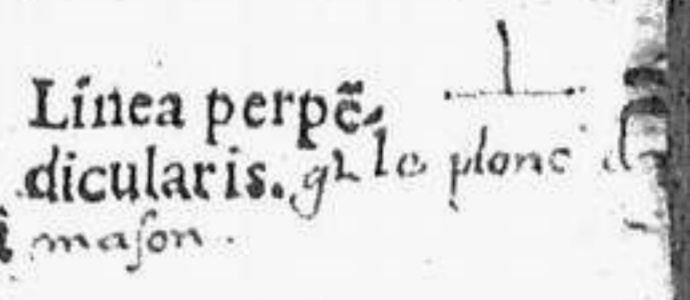 Linea perpẽ⸗
dicularis. gl le plonc
maſon.